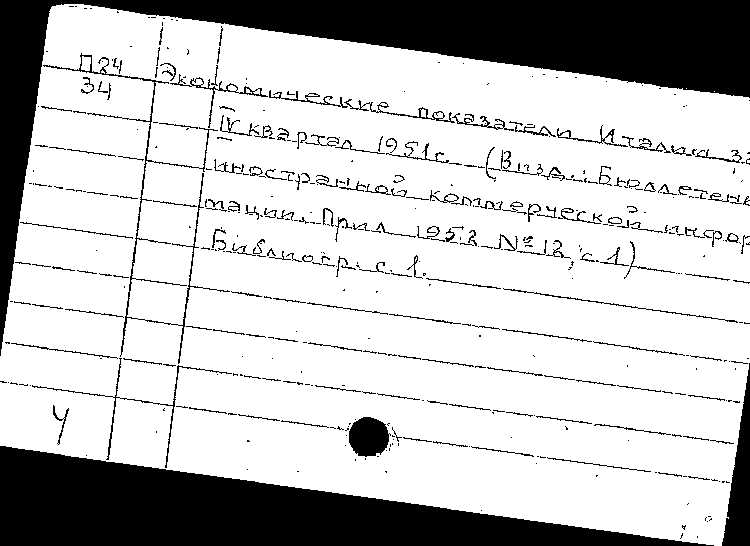 П24
34
Экономические показатели Италии за
IV квартал 1951г. (В изд.: Бюллетень
иностранной коммерческой инфор
мации. Прил 1952 № 12, с. 1)
Библиогр. с. 1.
У